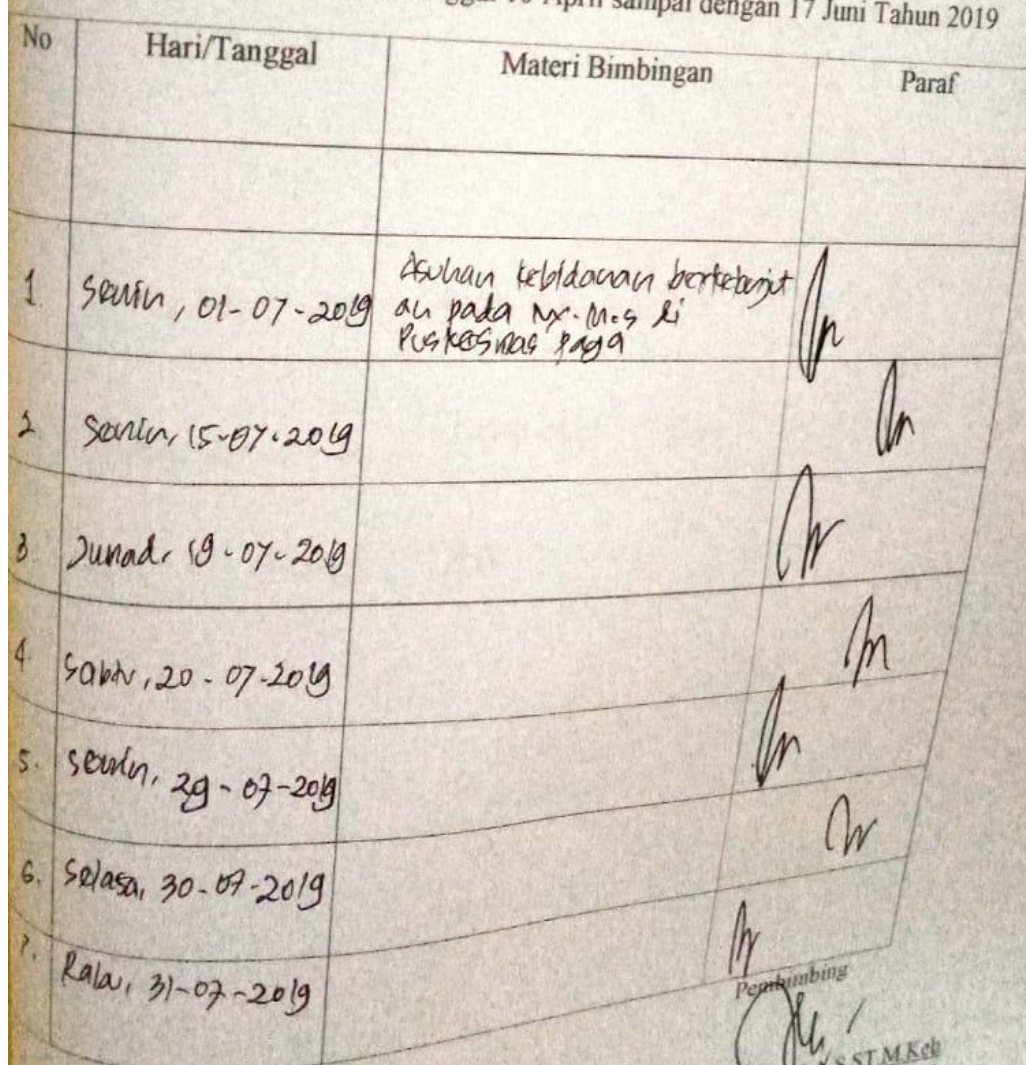 April sampai dengan 17 Juni Tahun 2019
No Hari/Tanggal Materi Bimbingan Paraf
1. Senin, 01-07-2019 Asuhan kebidanan berkelanjut
an pada Ny. M.S di
Puskesmas paga
2. Senin, 15-07-2019
3 Jumad, 19-07-2019
4. Sabtu, 20-07-2019
5. Senin, 29-07-2019
6. Selasa, 30-07-2019
7. Rabu, 31-07-2019
Pembimbing
S.ST.M.Keb